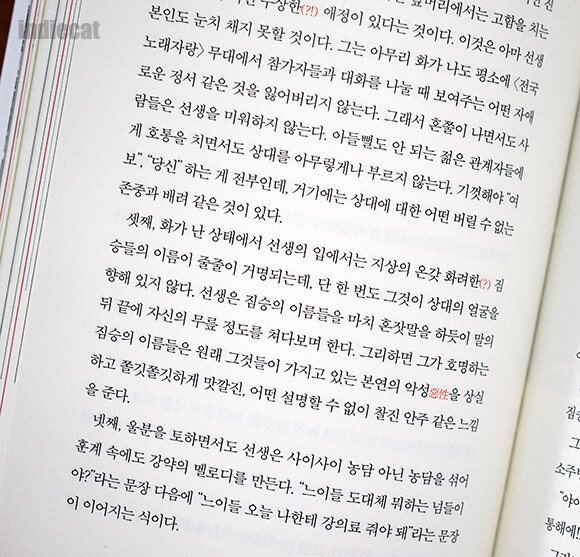 indiecat
수상한(?!) 애정이 있다는 것이다. 이것은 아마 선생
본인도 눈치 채지 못할 것이다. 그는 아무리 화가 나도 평소에 〈전국
노래자랑〉 무대에서 참가자들과 대화를 나눌 때 보여주는 어떤 자애
로운 정서 같은 것을 잃어버리지 않는다. 그래서 혼쭐이 나면서도 사
람들은 선생을 미워하지 않는다. 아들뻘도 안 되는 젊은 관계자들에
게 호통을 치면서도 상대를 아무렇게나 부르지 않는다. 기껏해야 “여
보”, “당신” 하는 게 전부인데, 거기에는 상대에 대한 어떤 버릴 수 없는
존중과 배려 같은 것이 있다.
셋째, 화가 난 상태에서 선생의 입에서는 지상의 온갖 화려한(?) 짐
승들의 이름이 줄줄이 거명되는데, 단 한 번도 그것이 상대의 얼굴을
향해 있지 않다. 선생은 짐승의 이름들을 마치 혼잣말을 하듯이 말의
뒤 끝에 자신의 무릎 정도를 쳐다보며 한다. 그리하면 그가 호명하는
짐승의 이름들은 원래 그것들이 가지고 있는 본연의 악성惡性을 상실
하고 쫄깃쫄깃하게 맛깔진, 어떤 설명할 수 없이 찰진 안주 같은 느낌
을 준다.
넷째, 울분을 토하면서도 선생은 사이사이 농담 아닌 농담을 섞어
훈계 속에도 강약의 멜로디를 만든다. “느이들 도대체 뭐하는 넘들이
야?”라는 문장 다음에 “느이들 오늘 나한테 강의료 줘야 돼”라는 문장
이 이어지는 식이다.
소주
“야이
통해에!